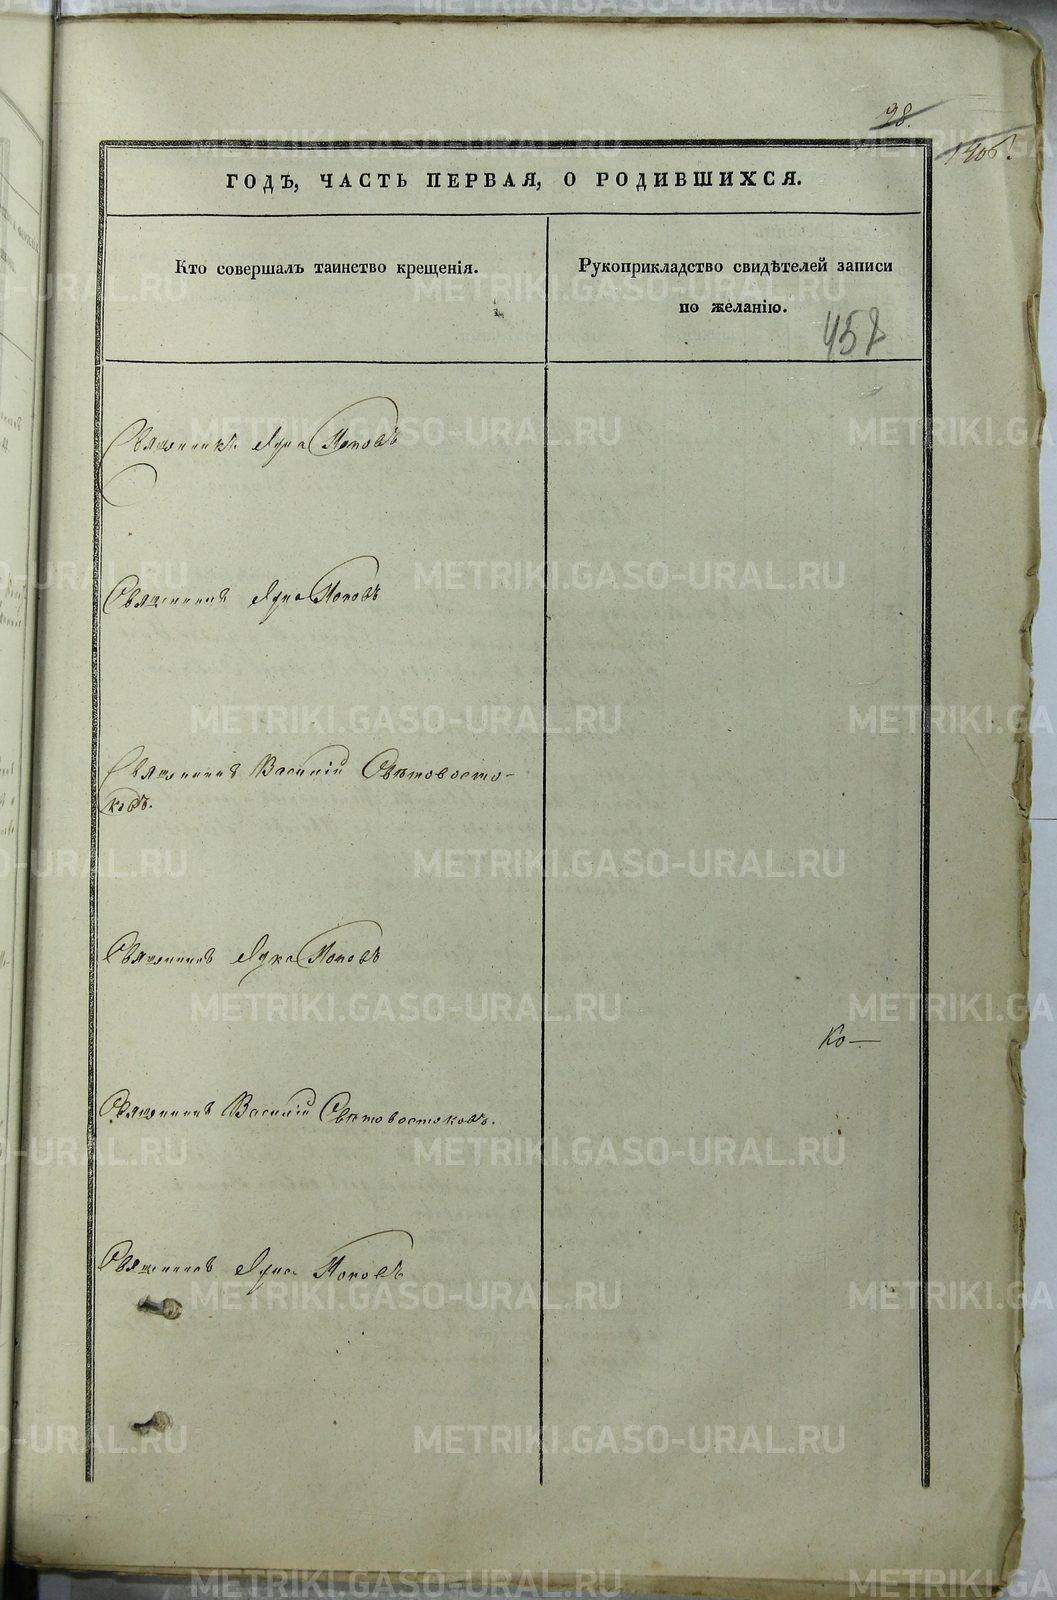 98.
1406.
ГОДЪ, ЧАСТЬ ПЕРВАЯ, О РОДИВШИХСЯ.
Кто совершалъ таинство крещенія.
Рукоприкладство свидѣтелей записи
по желанію.
457
Священникъ Лука Поповъ
Священникъ Лука Поповъ
Священникъ Василій Свѣтовосто-
ковъ.
Священникъ Лука Поповъ
Ко—
Священникъ Василій Свѣтовостоковъ.
Священникъ Лука Поповъ
METRIKI.GASO-URAL.RU